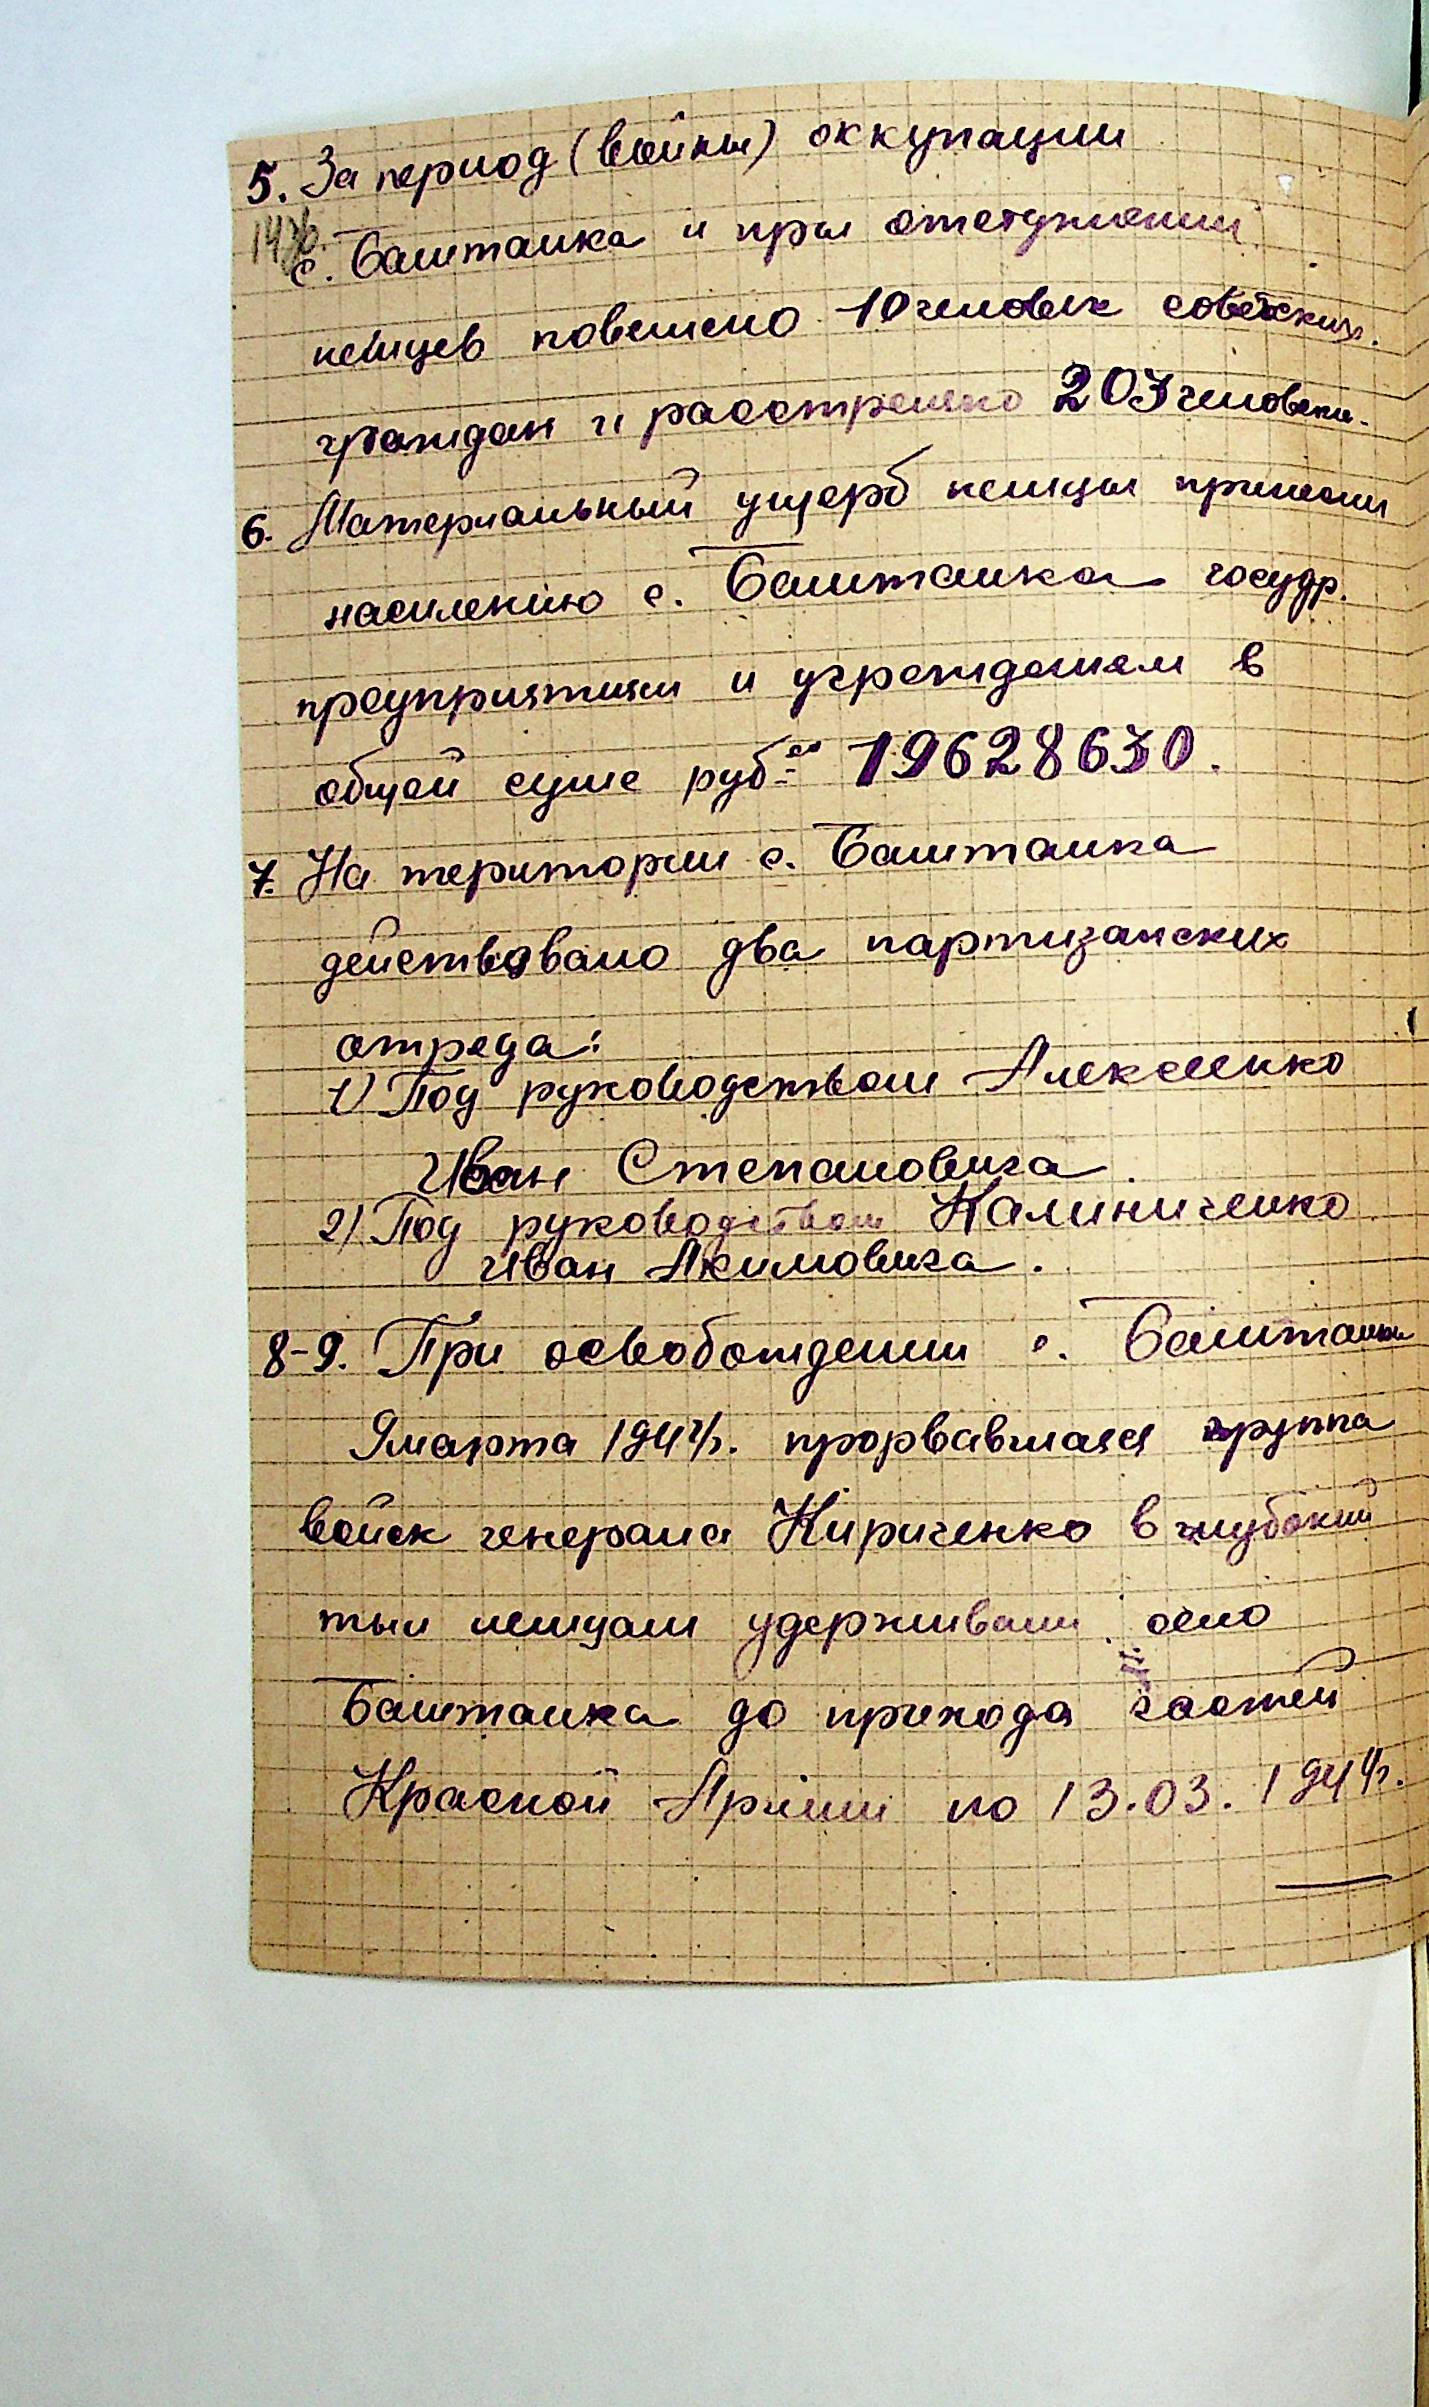 5. За период (войны) оккупации
с. Баштанка и при отступлении
немцев повешено 10 человек советских
граждан и расстрелено 203 человека.
6. Материальный ущерб немцы принесли
населению с. Баштанка госудр.
предприятиям и учреждениям в
общей суме руб. 19628630.
7. На територии с. Баштанка
действовало два партизанских
отряда:
1) Под руководством Алексеенко
Иван Степановича
2) Под руководством Калиниченко
Иван Акимовича.
8-9. При освобождении с. Баштанки
9 марта 1944г. прорвавшаяся группа
войск генерала Кириченко в глубокий
тыл немцам удерживали село
Баштанка до прихода частей
Красной Армии по 13.03.1944г.